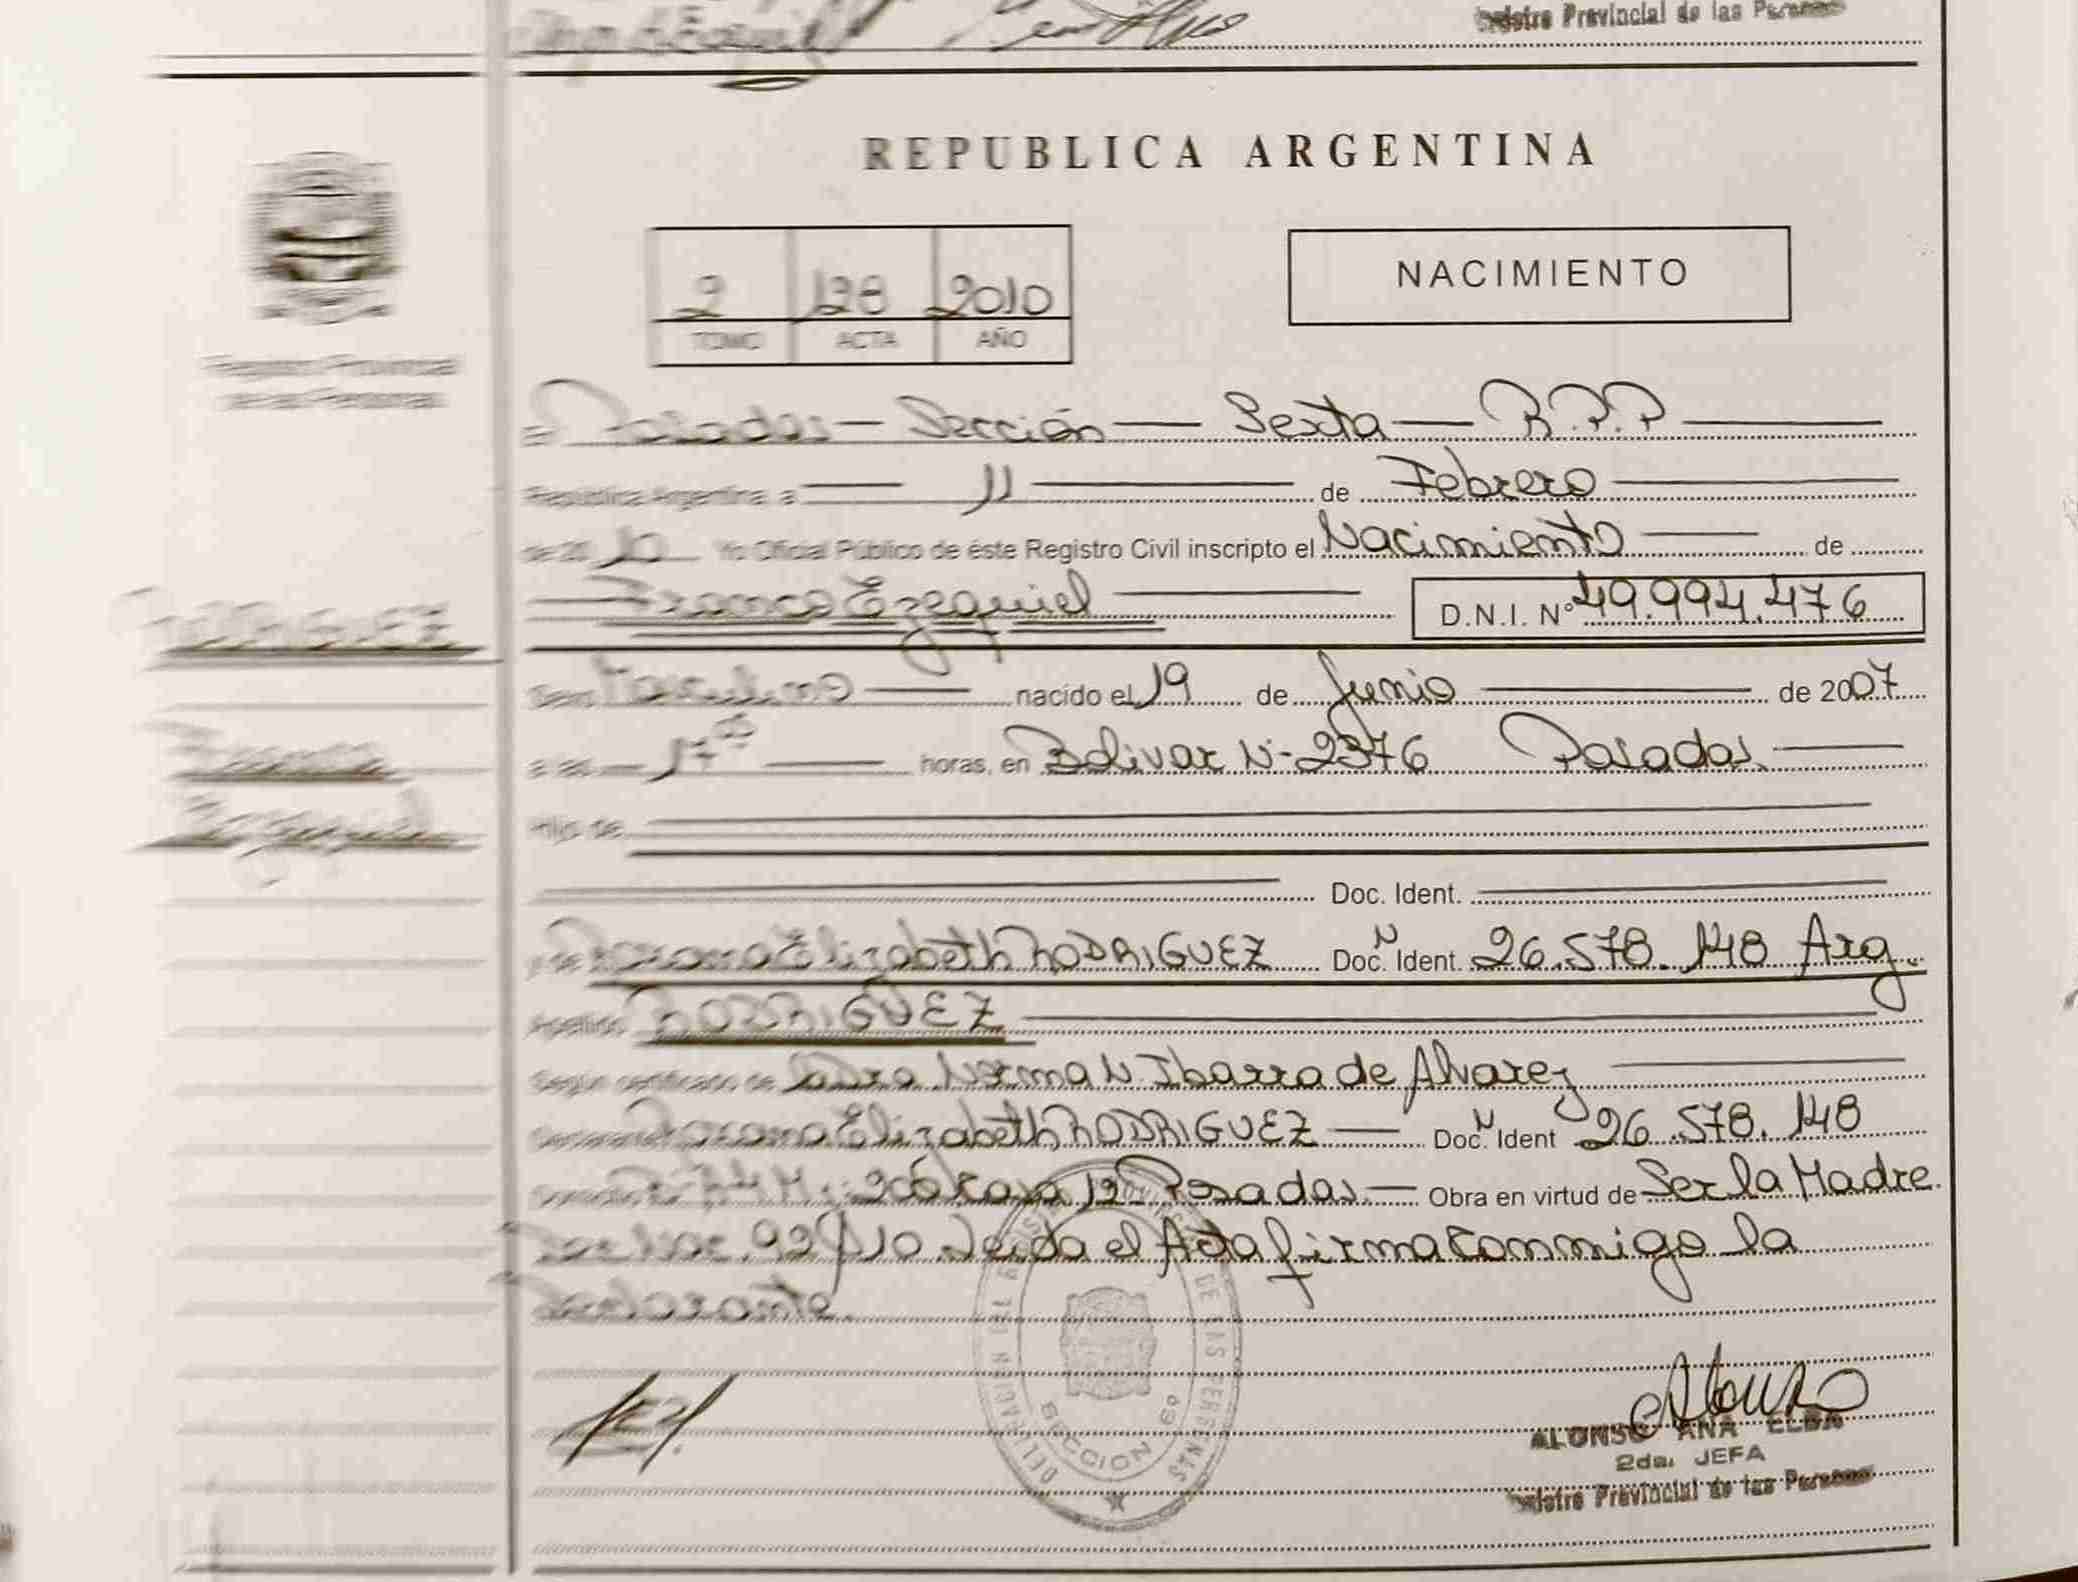 Registro Provincial de las Personas
REPUBLICA ARGENTINA
2 128 2010
TOMO ACTA AÑO
NACIMIENTO
Registro Provincial
de las Personas
En Posadas — Sección — Sexta — R.P.P
República Argentina, a 11 de Febrero
de 2010 Yo Oficial Público de éste Registro Civil inscripto el Nacimiento de
Franco Ezequiel D.N.I. Nº 49.994.476
RODRIGUEZ
Sexo Masculino nacido el 19 de Junio de 2007
Franco
a las 17 horas, en Bolivar Nº 2376 Posadas.
Ezequiel
Hijo de
Doc. Ident.
y de Elizabeth RODRIGUEZ Doc. N Ident. 26.578.148 Arg.
Apellido RODRIGUEZ
Según certificado de Norma N. Ibarra de Alvarez
Declarante Elizabeth RODRIGUEZ — Doc. N Ident 26.578.148
Posadas — Obra en virtud de Ser la Madre
Leida el Acta firma Conmigo la
DELEGACION
REGISTRO PROVINCIAL DE LAS PERSONAS
SECCION 6º
ALONSO ANA ELBA
2da. JEFA
Registro Provincial de las Personas